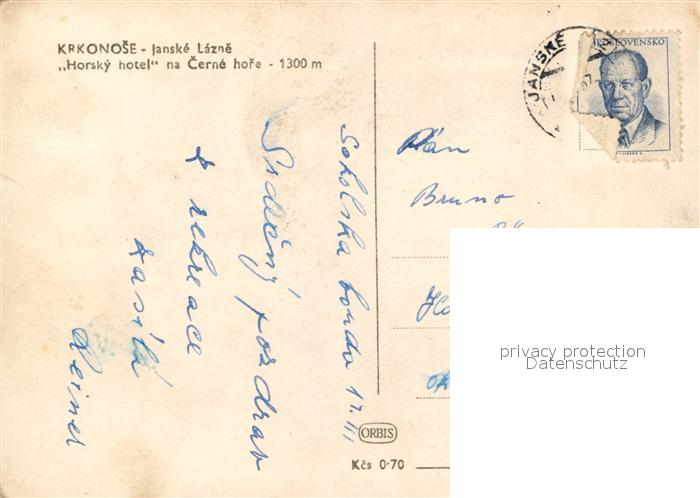 KRKONOŠE - Janské Lázně
„Horský hotel" na Černé hoře - 1300 m
JANSKÉ
ČESKOSLOVENSKO
Sokolska bouda 17. II
Srdečný pozdrav
z rekreace
zasílá
Pán
Bruno
privacy protection
Datenschutz
ORBIS
Kčs 0·70